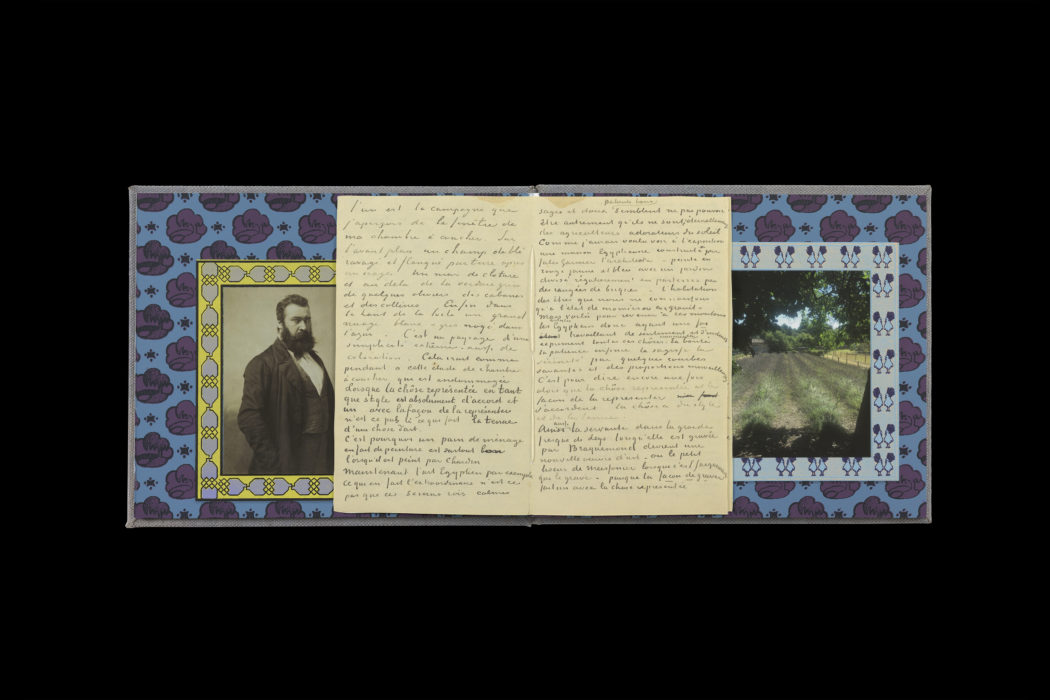 l'un est la campagne que
j'aperçois de la fenêtre de
ma chambre à coucher. Sur
l'avant plan un champ de blé
ravagé et flanqué par terre après
un orage. Un mur de clôture
et au delà de la verdure grise
de quelques oliviers des cabanes
et des collines. Enfin dans
le haut de la toile un grand
nuage blanc & gris noyé dans
l'azur. C'est un paysage d'une
simplicité extrême – aussi de
coloration. Cela irait comme
pendant à cette étude de chambre
à coucher qui est endommagée
Lorsque la chôse représentée en tant
que style est absolument d'accord et
un avec la façon de la représenter
n'est ce pas là ce qui fait la tenue
d'une chose d'art.
C'est pourquoi un pain de ménage
en fait de peinture est surtout bon
lorsqu'il est peint par Chardin
Maintenant l'art Egyptien par exemple
Ce qui en fait l'extraordinaire n'est ce
pas que ces sereins rois calmes
patients bons
sages et doux semblent ne pas pouvoir
être autrement qu'ils ne sont éternellement
des agriculteurs adorateurs du soleil
Comme j'aurais voulu voir à l'exposition
une maison Egyptienne construite par
Jules Garnier l'architecte – peinte en
rouge jaune et bleu avec un jardin
divisé régulièrement en parterres par
des rangées de briques – l'habitation
des êtres que nous ne connaissons
qu'à l'état de momies ou en granit –
Mais voilà pour revenir à ces moutons
les Egyptiens donc ayant une foi
travaillant de sentiment et d'instinct
expriment toutes ces choses la bonté
la patience infinie la sagesse la
sérénité par quelques courbes
savantes et des proportions merveilleuses
C'est pour dire encore une fois
alors que la chôse représentée et la
façon de la représenter
s'accordent la chôse a du style
et de la tenue.
Ainsi aussi la servante dans la grande
fresque de Leys lorsqu'elle est gravée
par Braquemond devient une
nouvelle œuvre d'art – ou le petit
liseur de Meissonier lorsque c'est Jacquemart
qui le grave – puisque la façon de graver
fait un avec la chose représentée